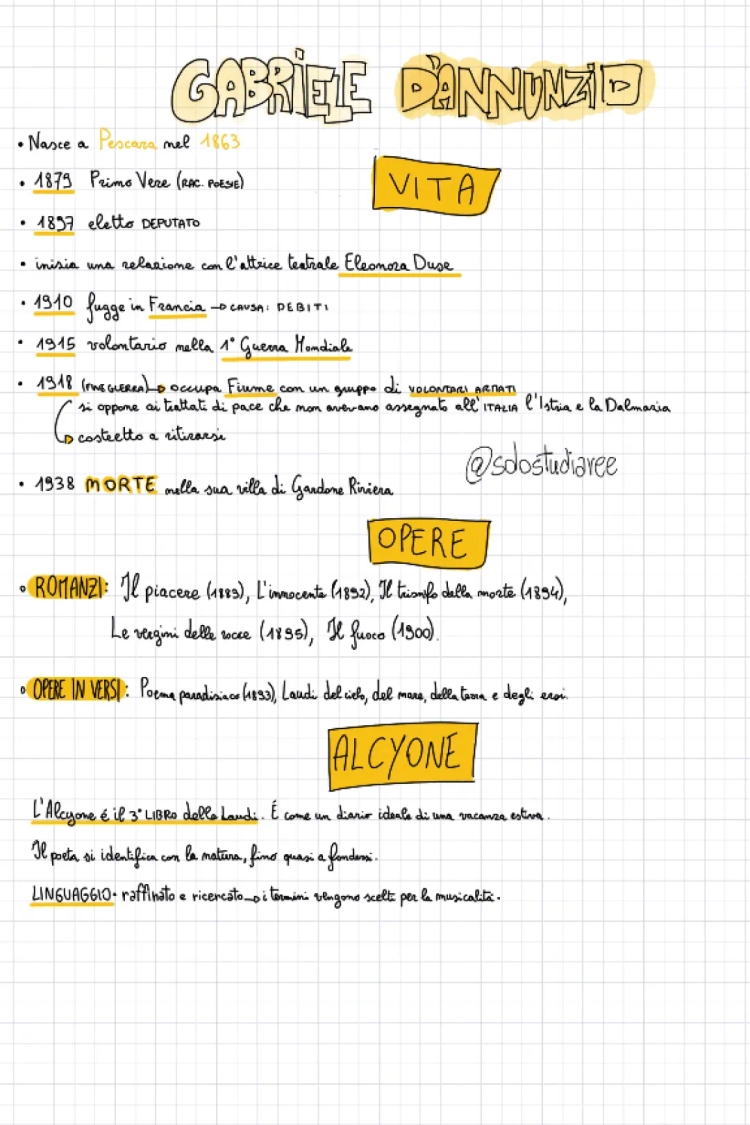 GABRIELE D'ANNUNZIO
• Nasce a Pescara nel 1863
VITA
• 1879 Primo Vere (RAC. POESIE)
• 1897 eletto DEPUTATO
• inizia una relazione con l'attrice teatrale Eleonora Duse
• 1910 fugge in Francia → CAUSA: DEBITI
• 1915 volontario nella 1° Guerra Mondiale
• 1918 (FINE GUERRA) → occupa Fiume con un gruppo di VOLONTARI ARMATI
si oppone ai trattati di pace che non avevano assegnato all'ITALIA l'Istria e la Dalmazia
→ costretto a ritirarsi
@solostudiavee
• 1938 MORTE nella sua villa di Gardone Riviera
OPERE
• ROMANZI: Il piacere (1889), L'innocente (1892), Il trionfo della morte (1894),
Le vergini delle rocce (1895), Il fuoco (1900).
• OPERE IN VERSI: Poema paradisiaco (1893), Laudi del cielo, del mare, della terra e degli eroi.
ALCYONE
L'Alcyone é il 3° LIBRO delle Laudi. É come un diario ideale di una vacanza estiva.
Il poeta si identifica con la natura, fino quasi a fondersi.
LINGUAGGIO• raffinato e ricercato → i termini vengono scelti per la musicalità.